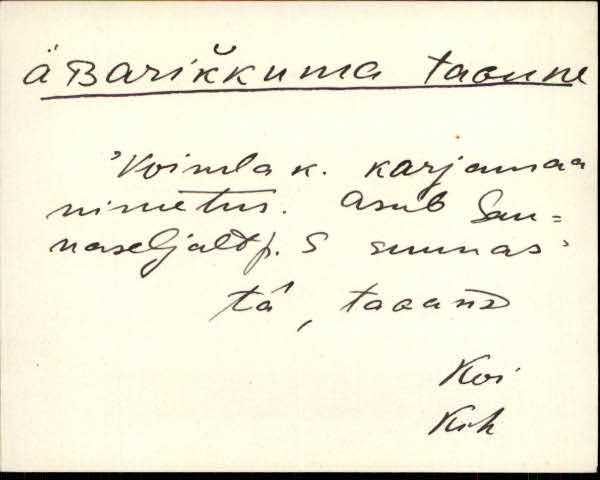 äBarikkuma taoune
'Voimla k. karjamaa
nimetus. Asub Sau=
naseljalt p. S suunas'
tā, taaanD
Koi
Krk